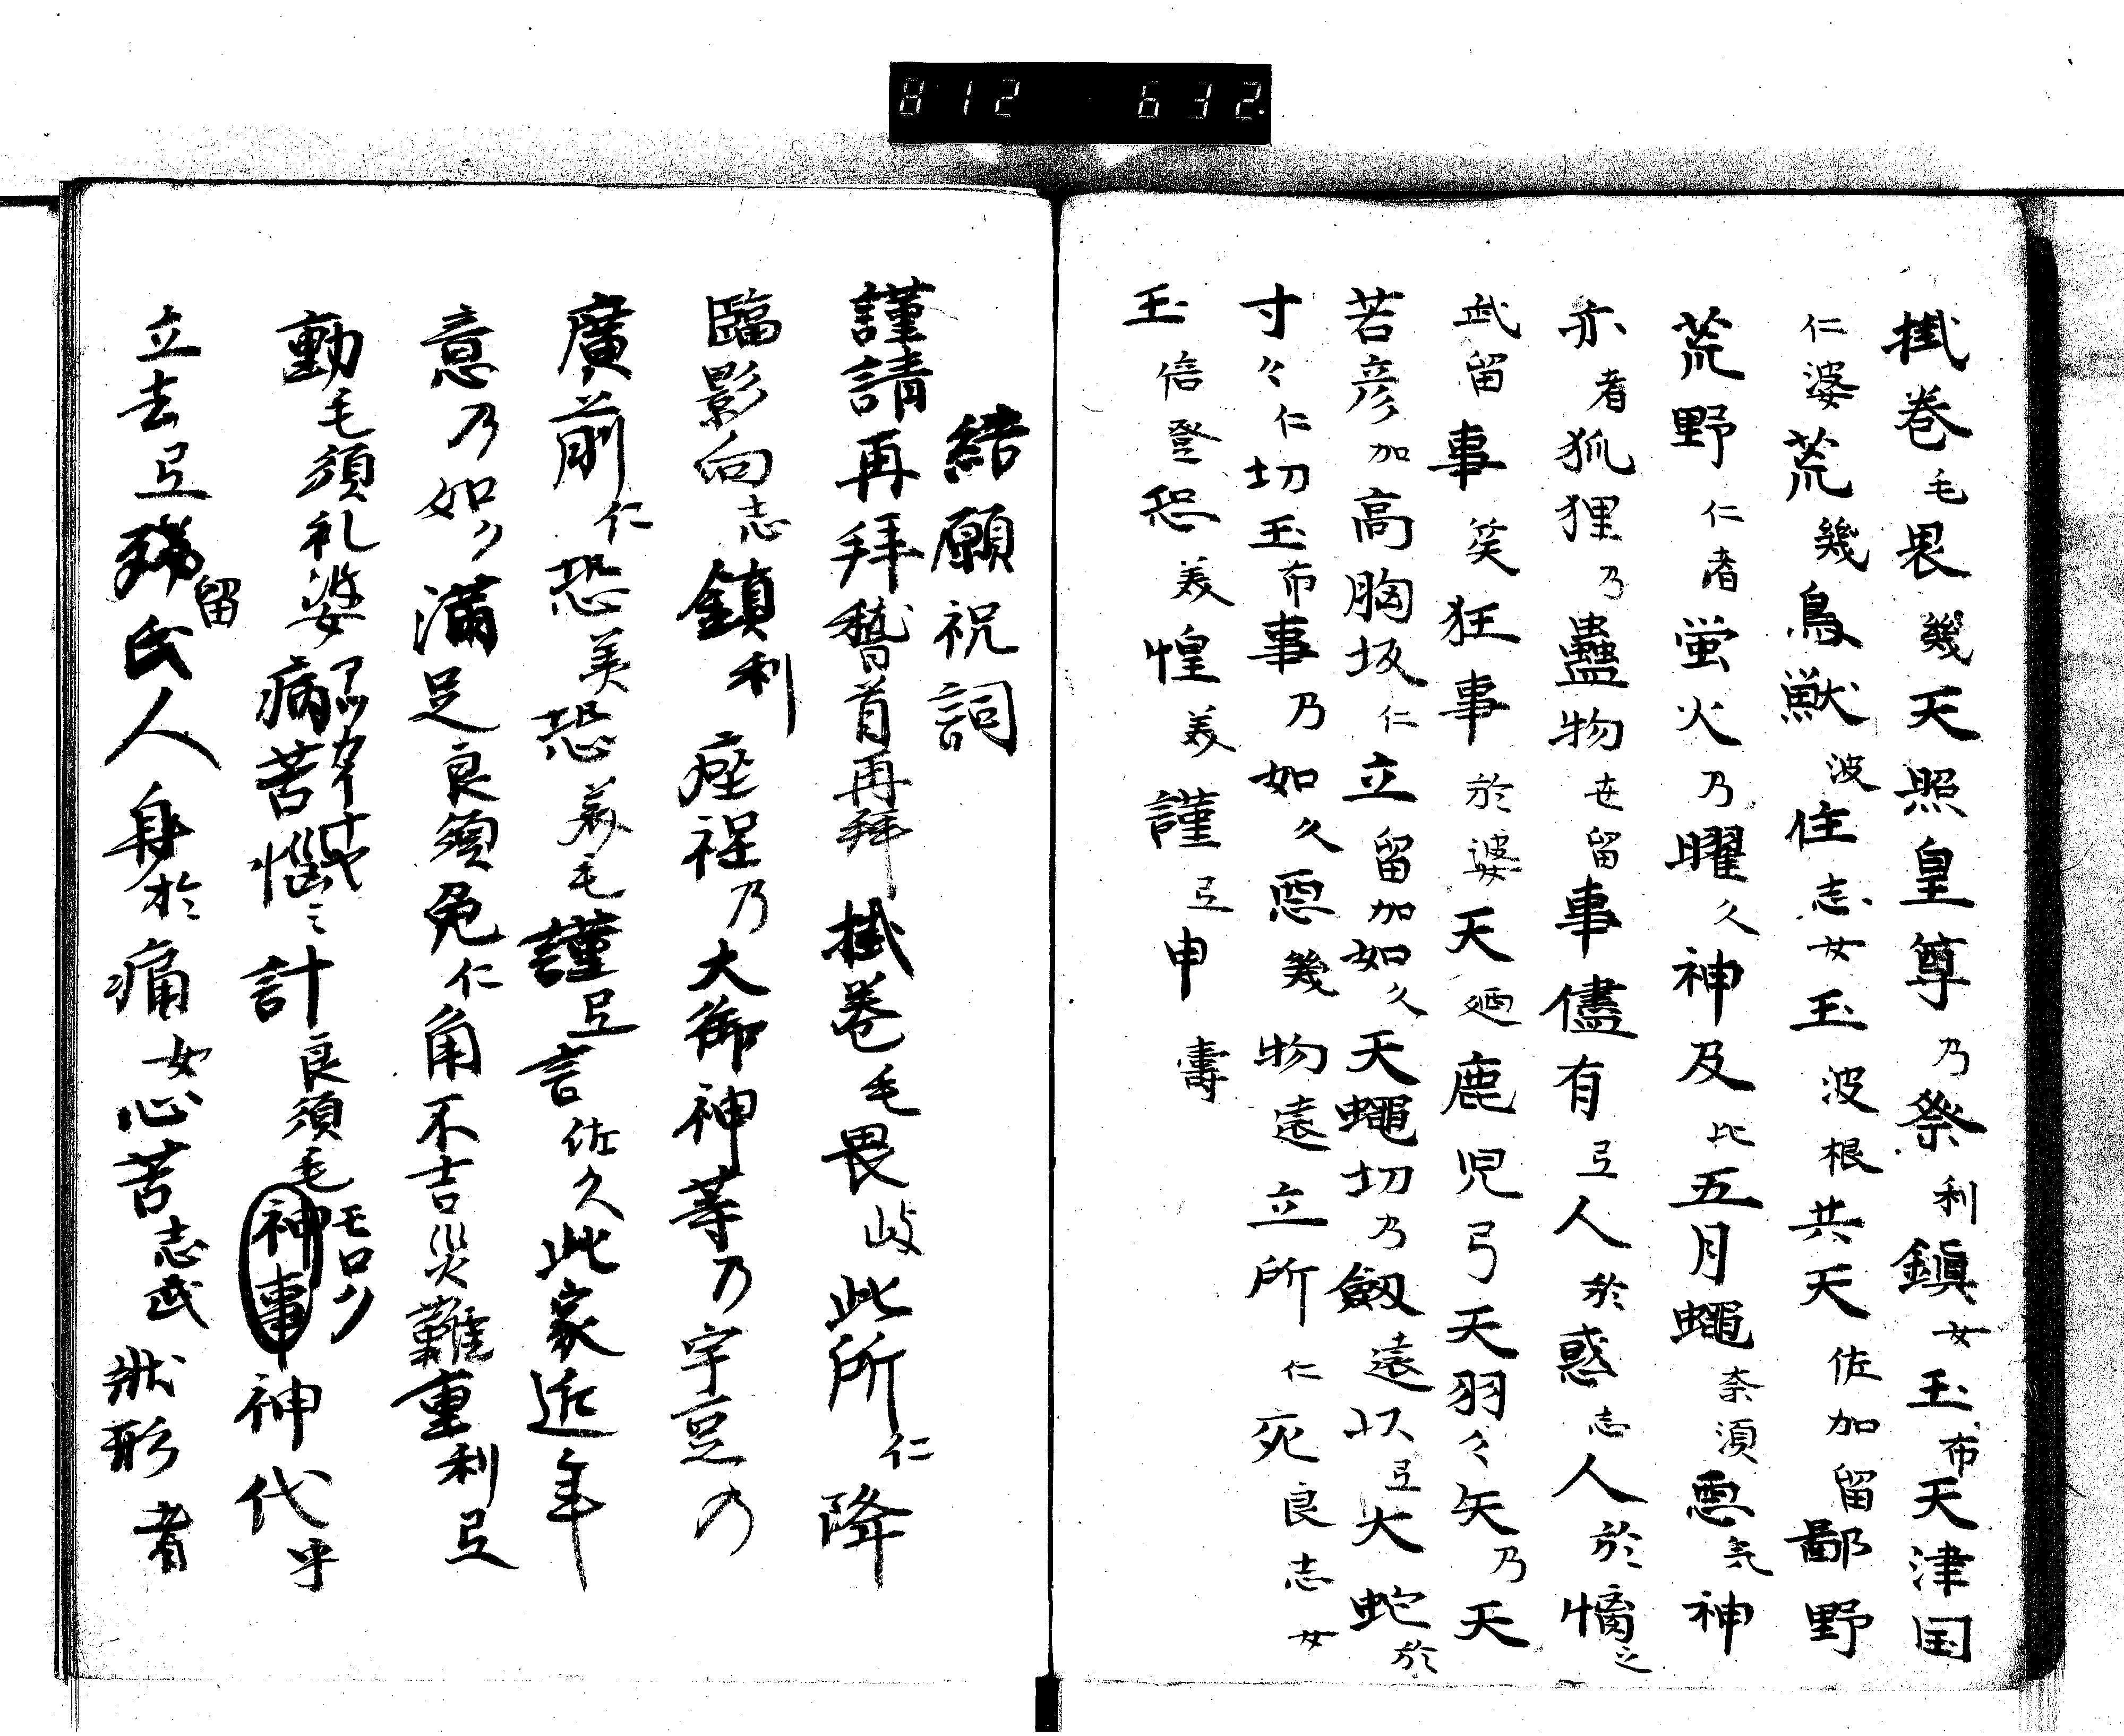 812 632
掛巻毛畏幾天照皇尊乃祭利鎮女玉布天津国
仁婆荒幾鳥獣波住志女玉波根共天佐加留鄙野
荒野仁者蛍火乃曜久神及比五月蠅奈須悪気神
亦者狐狸乃蠱物世留事儘有弖人於惑志人於
武留事笑狂事於婆天廼鹿児弓天羽々矢乃天
若彦加高胸坂仁立留加如久天蠅切乃劔遠以弖大蛇於
寸々仁切玉布事乃如久悪幾物遠立所仁死良志女
玉倍登恐美惶美謹弖申寿
結願祝詞
謹請再拝稽首再拝掛巻毛畏岐此所仁降
臨影向志鎮利座程乃大御神等乃宇豆乃
廣前仁恐美恐美毛謹弖言佐久此家近年
意乃如ク満足良須免仁角不吉災難重利弖
動毛須礼婆病苦悩ミ計良須毛神事モロク神代乎
立去弖残留氏人身於痛女心苦志武状形者